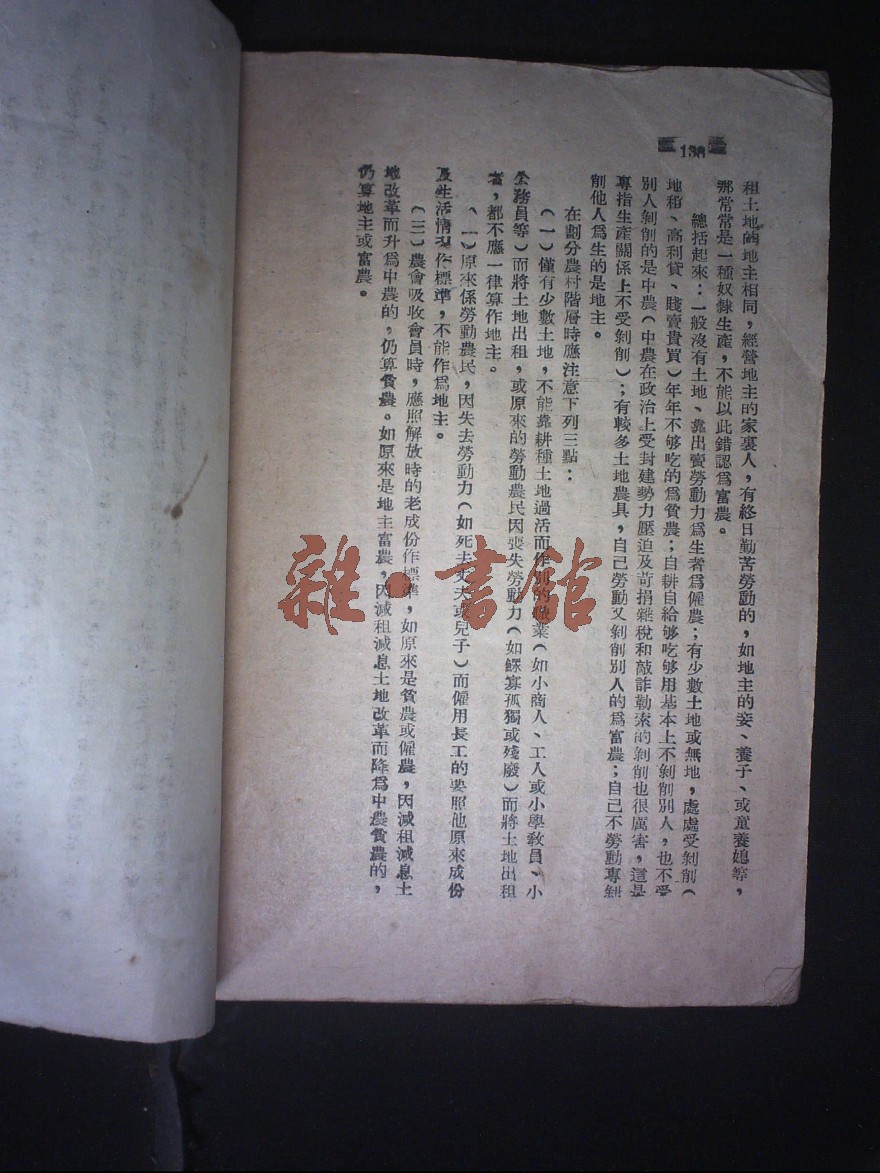 138
租土地的地主相同，經營地主的家裏人，有終日勤苦勞動的，如地主的妾、養子、或童養媳等，
那常常是一種奴隸生產，不能以此錯認爲富農。
總括起來：一般沒有土地、靠出賣勞動力爲生者爲僱農；有少數土地或無地，處處受剝削（
地租、高利貸、賤賣貴買）年年不够吃的爲貧農；自耕自給够吃够用基本上不剝削別人，也不受
別人剝削的是中農（中農在政治上受封建勢力壓迫及苛捐雜稅和敲詐勒索的剝削也很厲害，這是
專指生產關係上不受剝削）；有較多土地農具，自己勞動又剝削別人的爲富農；自己不勞動專靠剝
削他人爲生的是地主。
在劃分農村階層時應注意下列三點：
（一）僅有少數土地，不能靠耕種土地過活而作別的職業（如小商人、工人或小學敎員、小
公務員等）而將土地出租，或原來的勞動農民因喪失勞動力（如鰥寡孤獨或殘廢）而將土地出租
者，都不應一律算作地主。
（二）原來係勞動農民，因失去勞動力（如死去丈夫或兒子）而僱用長工的要照他原來成份
及生活情況作標準，不能作爲地主。
（三）農會吸收會員時，應照解放時的老成份作標準，如原來是貧農或僱農，因減租減息土
地改革而升爲中農的，仍算貧農。如原來是地主富農，因減租減息土地改革而降爲中農貧農的，
仍算地主或富農。
雜·書館